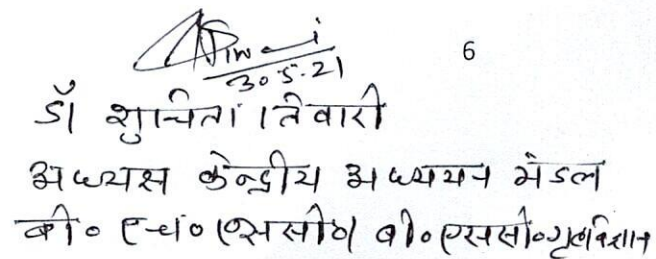 6
30.5.21
डॉ शुचिता तिवारी
अध्यक्ष केन्द्रीय अध्ययन मंडल
बी० एच० (एससी०) बी०एससी०गृहविज्ञान